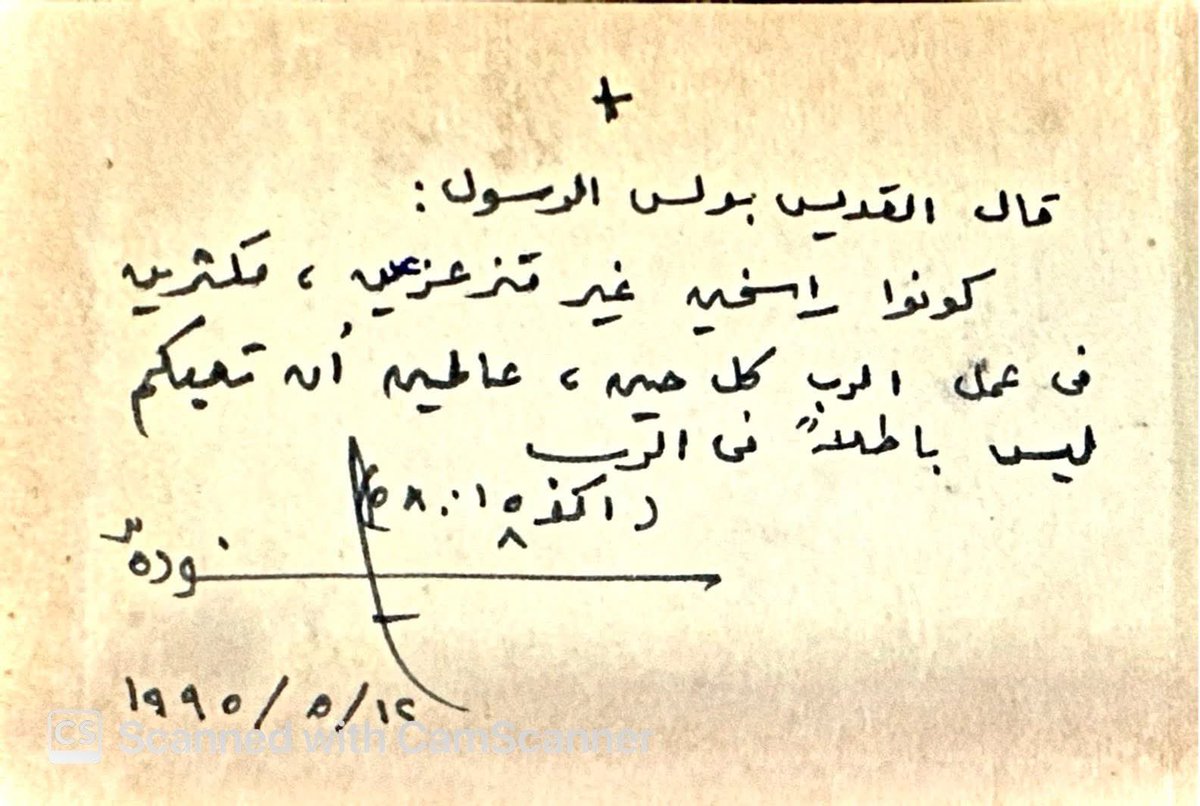 +
قال القديس بولس الرسول :
كونوا راسخين غير متزعزعين ، مكثرين
فى عمل الرب كل حين ، عالمين أن تعبكم
ليس باطلاً فى الرب
( ١كو ١٥ : ٥٨ )
١٩٩٥/٥/١٢
CS Scanned with CamScanner